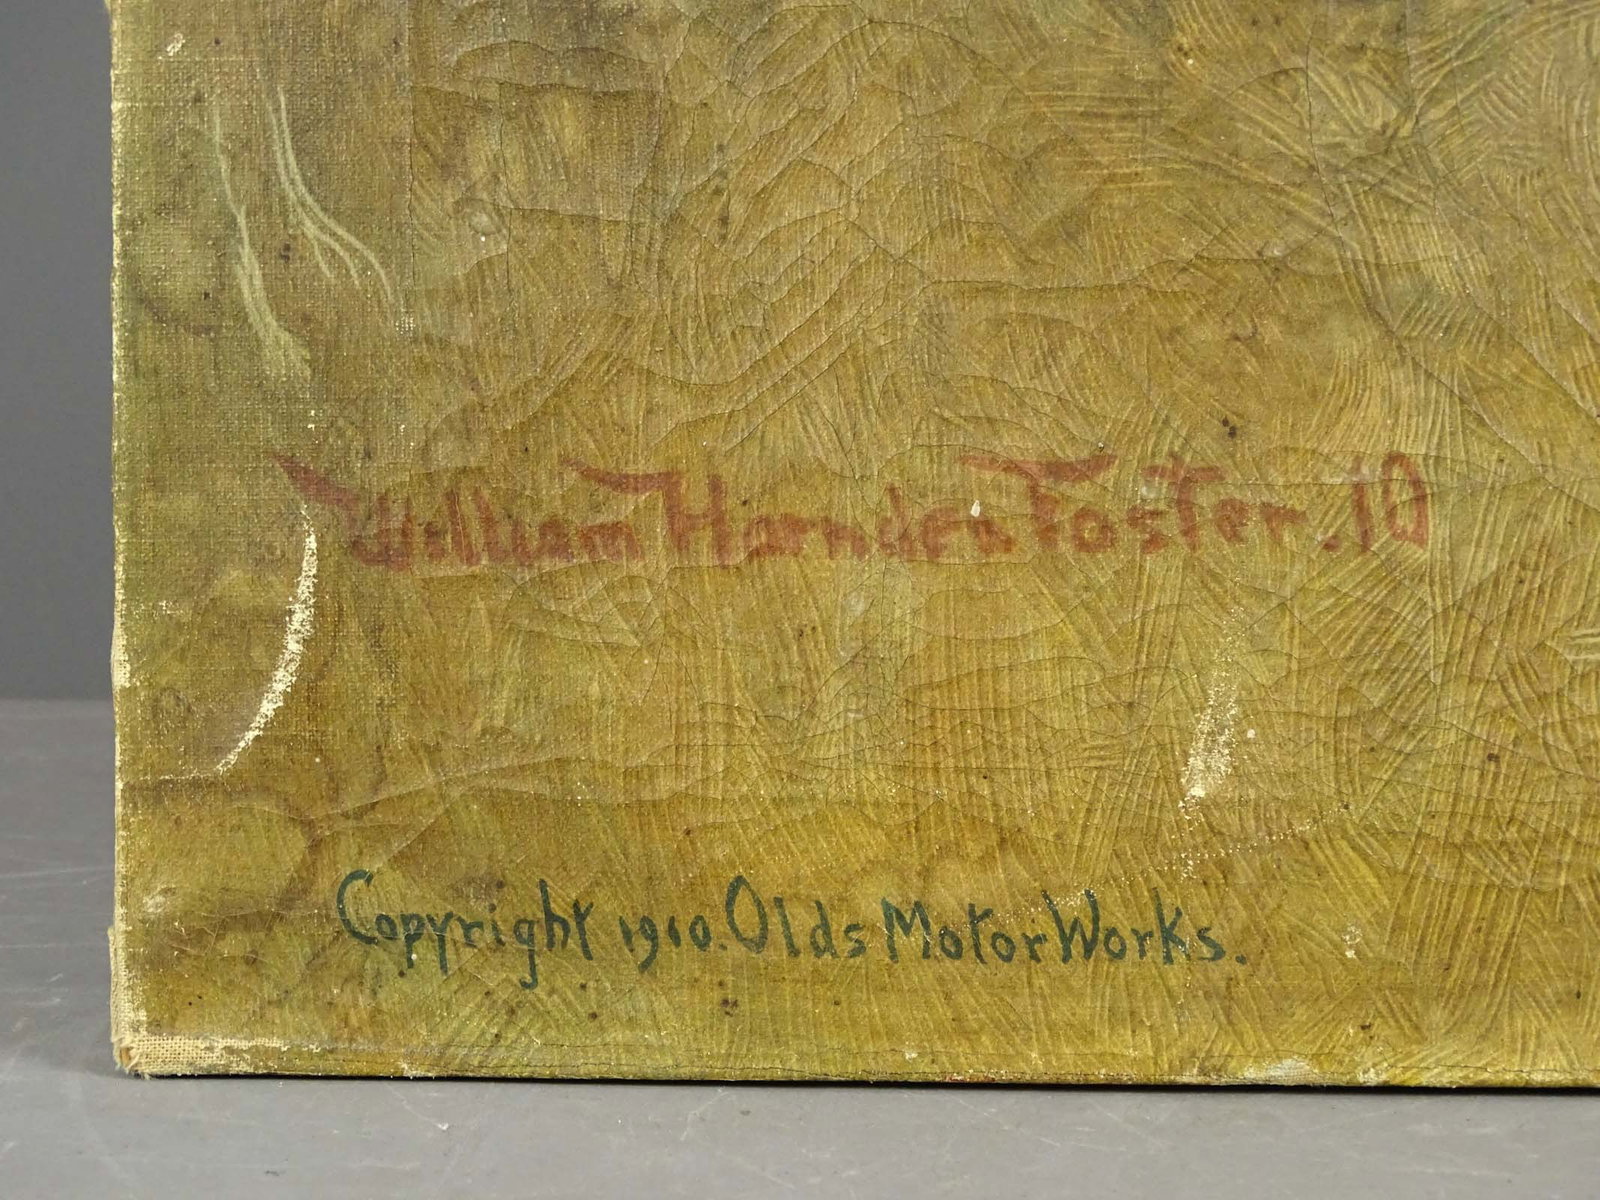 William Harnden Foster. 10
Copyright 1910. Olds Motor Works.